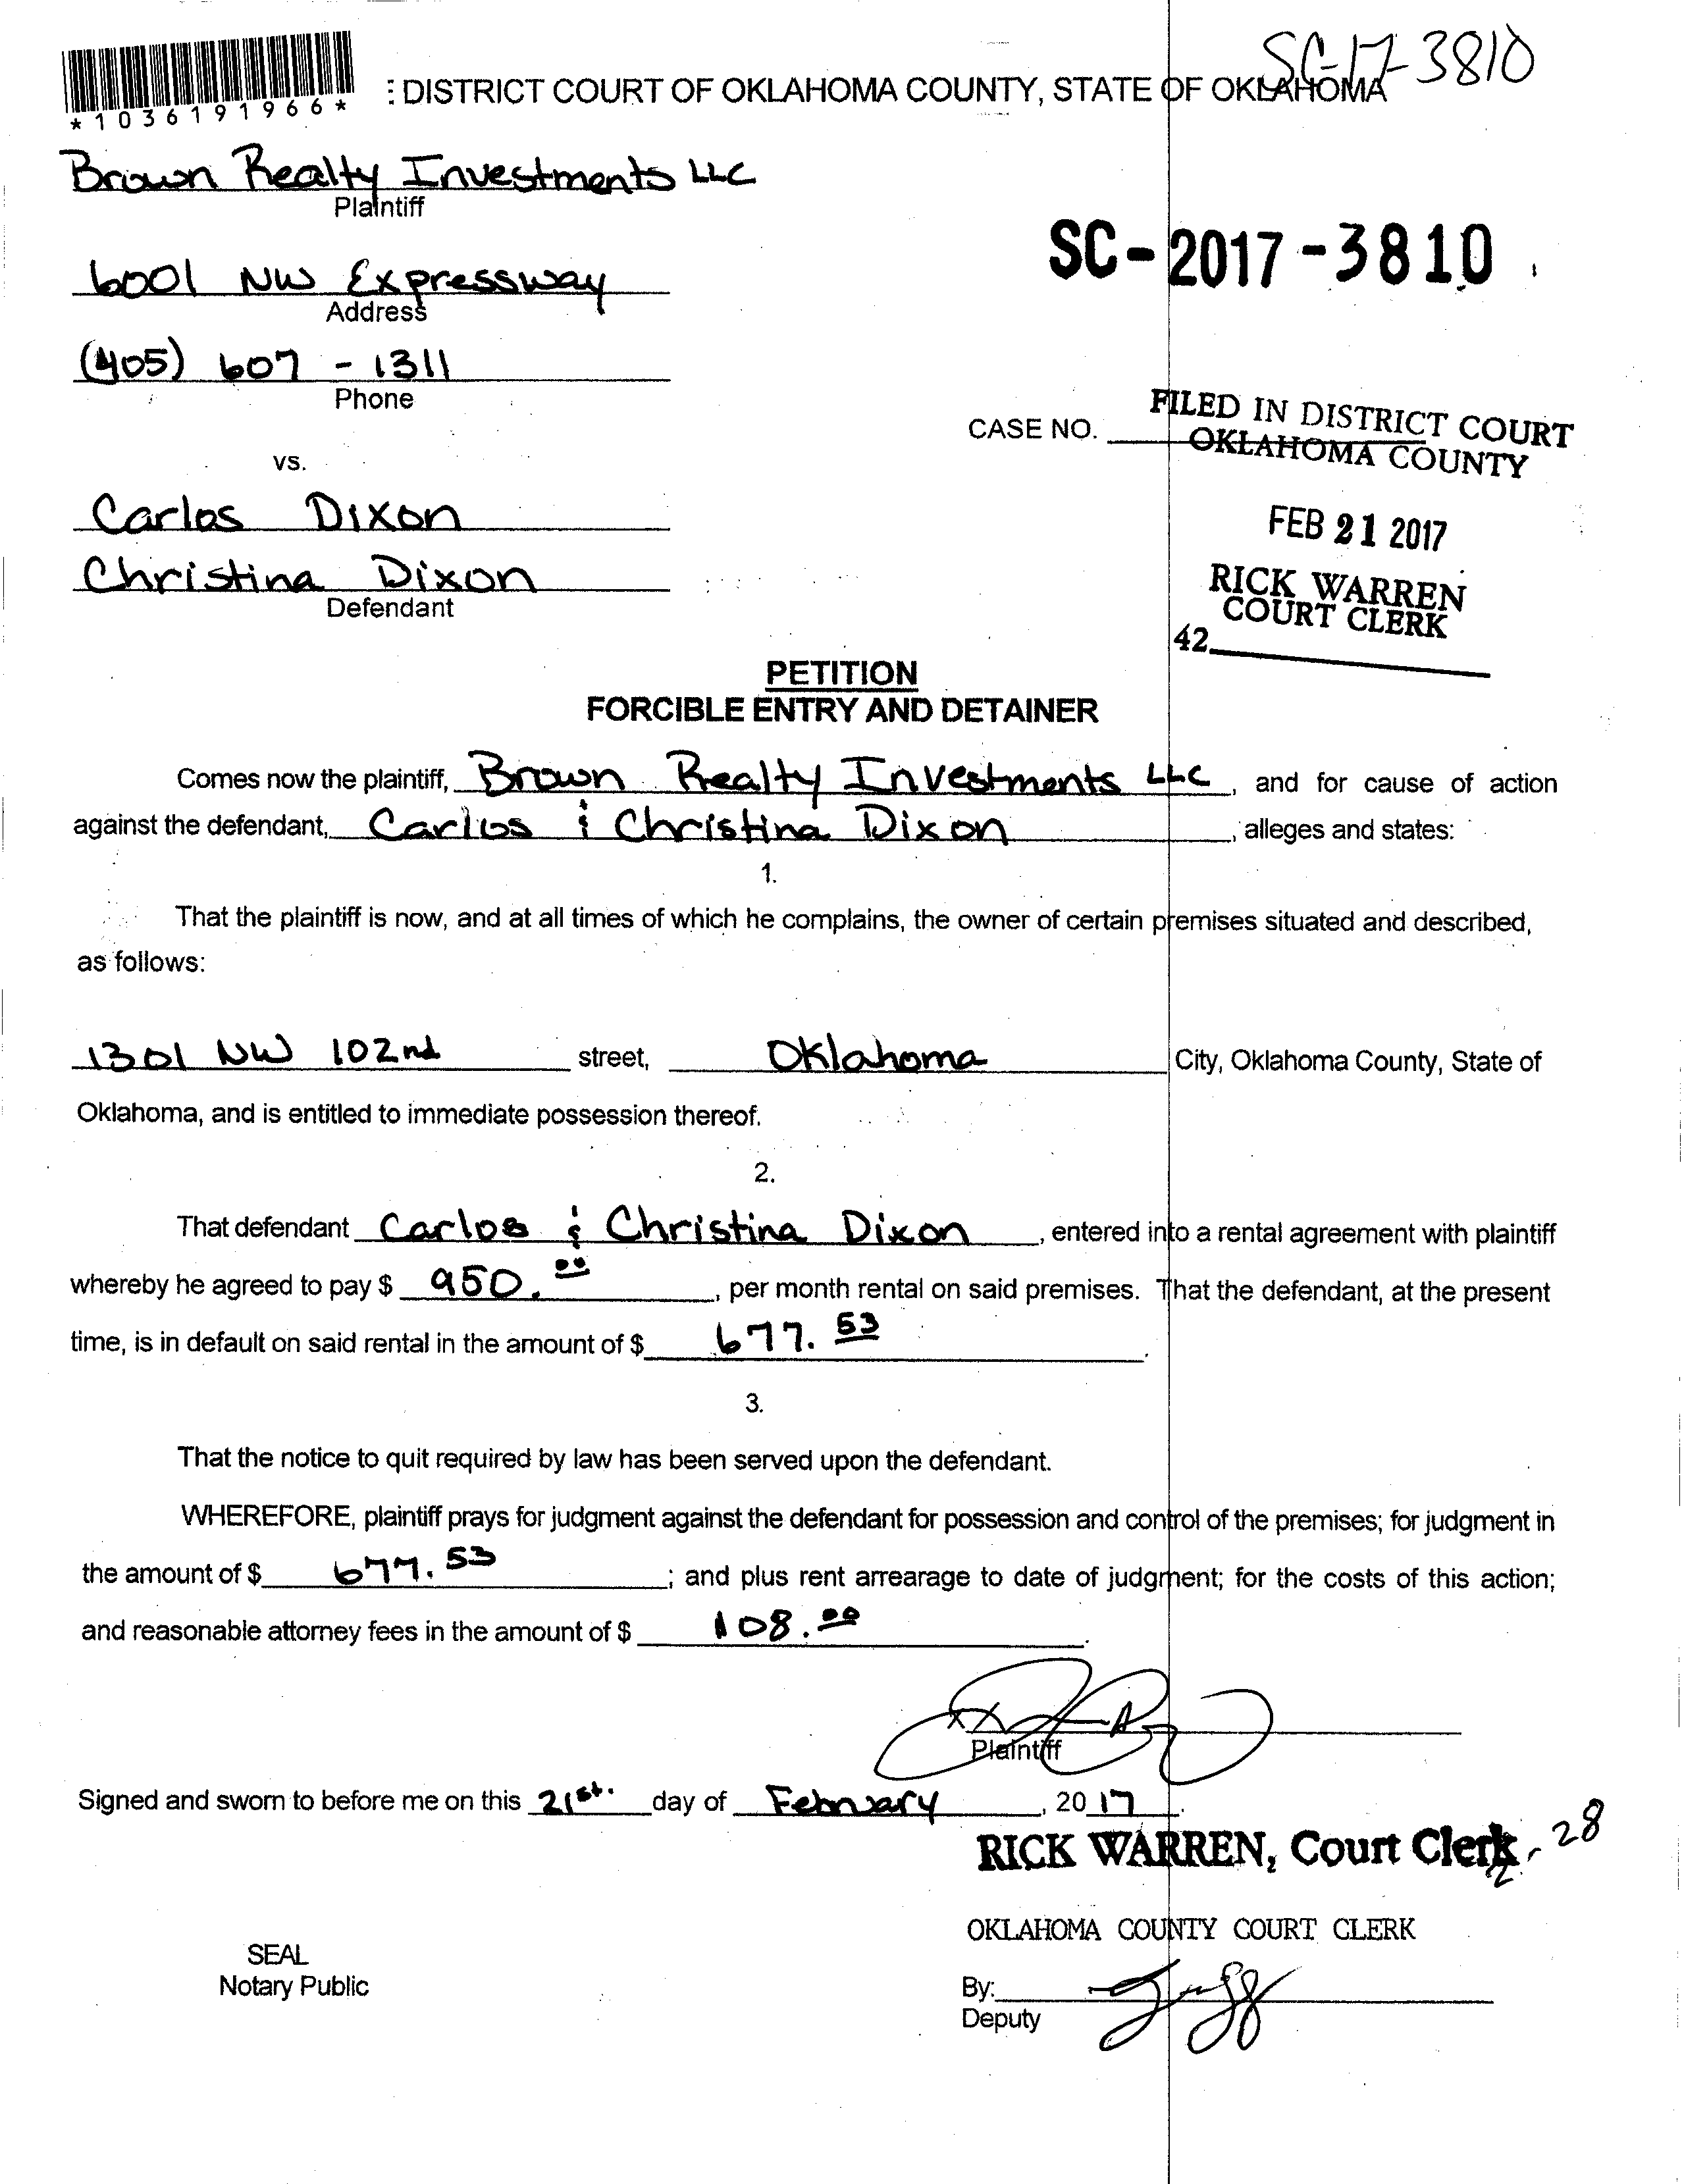 SC-17-3810
*1036191966*
: DISTRICT COURT OF OKLAHOMA COUNTY, STATE OF OKLAHOMA
Brown Realty Investments LLC
Plaintiff
SC-2017-3810
6001 NW Expressway
Address
(405) 607-1311
Phone
FILED IN DISTRICT COURT
CASE NO.
OKLAHOMA COUNTY
vs.
Carlos Dixon
FEB 21 2017
Christina Dixon
Defendant
RICK WARREN
COURT CLERK
42
PETITION
FORCIBLE ENTRY AND DETAINER
Comes now the plaintiff, Brown Realty Investments LLC, and for cause of action
against the defendant, Carlos & Christina Dixon, alleges and states:
1.
That the plaintiff is now, and at all times of which he complains, the owner of certain premises situated and described,
as follows:
1301 NW 102nd street, Oklahoma City, Oklahoma County, State of
Oklahoma, and is entitled to immediate possession thereof.
2.
That defendant Carlos & Christina Dixon, entered into a rental agreement with plaintiff
whereby he agreed to pay $ 950.00, per month rental on said premises. That the defendant, at the present
time, is in default on said rental in the amount of $ 677.53.
3.
That the notice to quit required by law has been served upon the defendant.
WHEREFORE, plaintiff prays for judgment against the defendant for possession and control of the premises; for judgment in
the amount of $ 677.53; and plus rent arrearage to date of judgment; for the costs of this action;
and reasonable attorney fees in the amount of $ 108.00.
Plaintiff
Signed and sworn to before me on this 21st. day of February, 2017.
RICK WARREN, Court Clerk
2-28
OKLAHOMA COUNTY COURT CLERK
SEAL
Notary Public
By:
Deputy